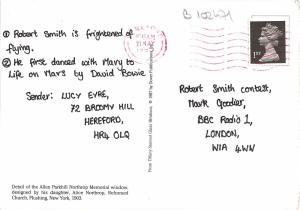 B 102671
① Robert Smith is frightened of
flying.
② He first danced with Mary to
Life on Mars by David Bowie
Sender: LUCY EYRE,
72 BROOMY HILL
HEREFORD,
HR4 0LQ
1ST
Robert Smith contest,
Mark Goodier,
BBC Radio 1,
LONDON,
W1A 4WN
Detail of the Allen Parkhill Northrop Memorial window,
designed by his daughter, Alice Northrop, Reformed
Church, Flushing, New York, 1903.